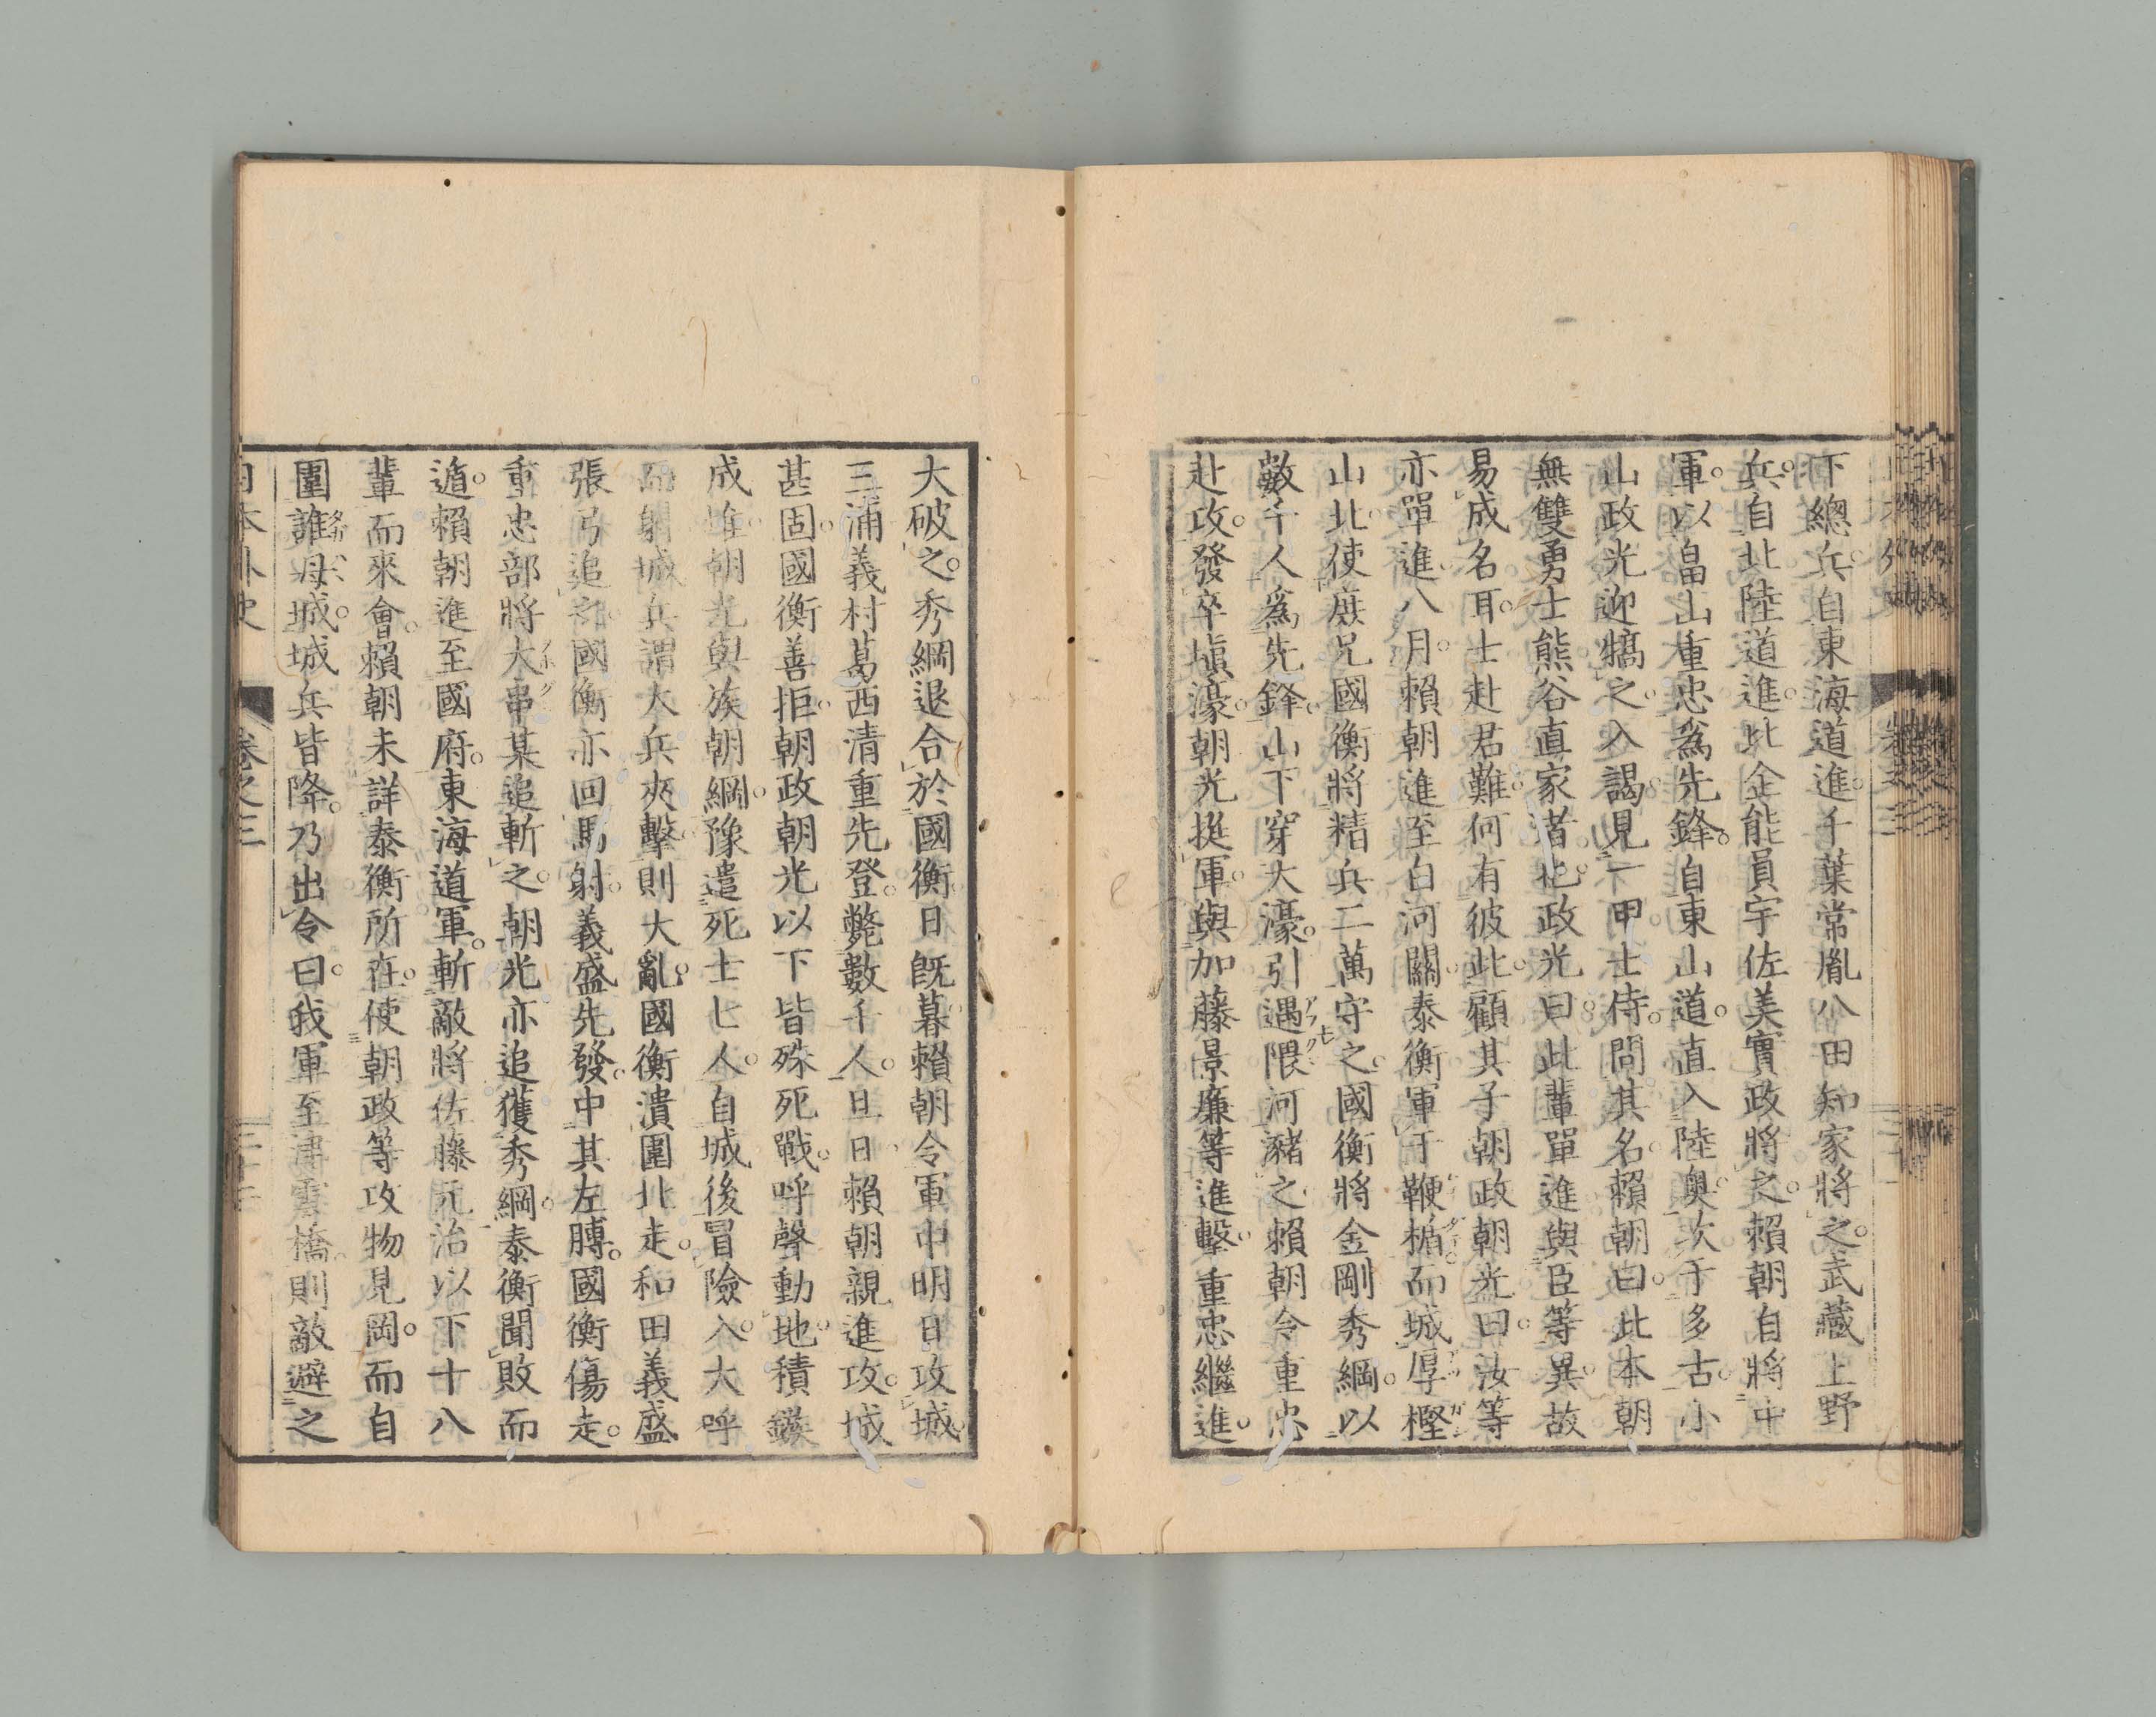 下總兵自東海道進千葉常胤八田知家將之武藏上野
兵自北陸道進比企能員宇佐美實政將之賴朝自將中
軍以畠山重忠爲先鋒自東山道直入陸奧次于多古小
山政光迎犒之入謁見一甲士侍問其名賴朝曰此本朝
無雙勇士熊谷直家者也政光曰此輩單進與臣等異故
易成名耳士赴君難何有彼此顧其子朝政朝光曰汝等
亦單進八月賴朝進至白河關泰衡軍于鞭楯而城厚樫
山北使庶兄國衡將精兵二萬守之國衡將金剛秀綱以
數千人爲先鋒山下穿大濠引遇隈河瀦之賴朝令重忠
赴攻發卒塡濠朝光挺軍與加藤景廉等進擊重忠繼進
大破之秀綱退合於國衡日既暮賴朝令軍中明日攻城
三浦義村葛西清重先登斃數千人旦日賴朝親進攻城
甚固國衡善拒朝政朝光以下皆殊死戰呼聲動地積鏃
成堆朝光與族朝綱豫遣死士七人自城後冒險入大呼
而射城兵謂大兵夾擊則大亂國衡潰圍北走和田義盛
張弓追之國衡亦回馬射義盛先發中其左膊國衡傷走
重忠部將大串某追斬之朝光亦追獲秀綱泰衡聞敗而
遁賴朝進至國府東海道軍斬敵將佐藤元治以下十八
輩而來會賴朝未詳泰衡所在使朝政等攻物見岡而自
圍誰母城城兵皆降乃出令曰我軍至津雲橋則敵避之
日本外史 卷之三